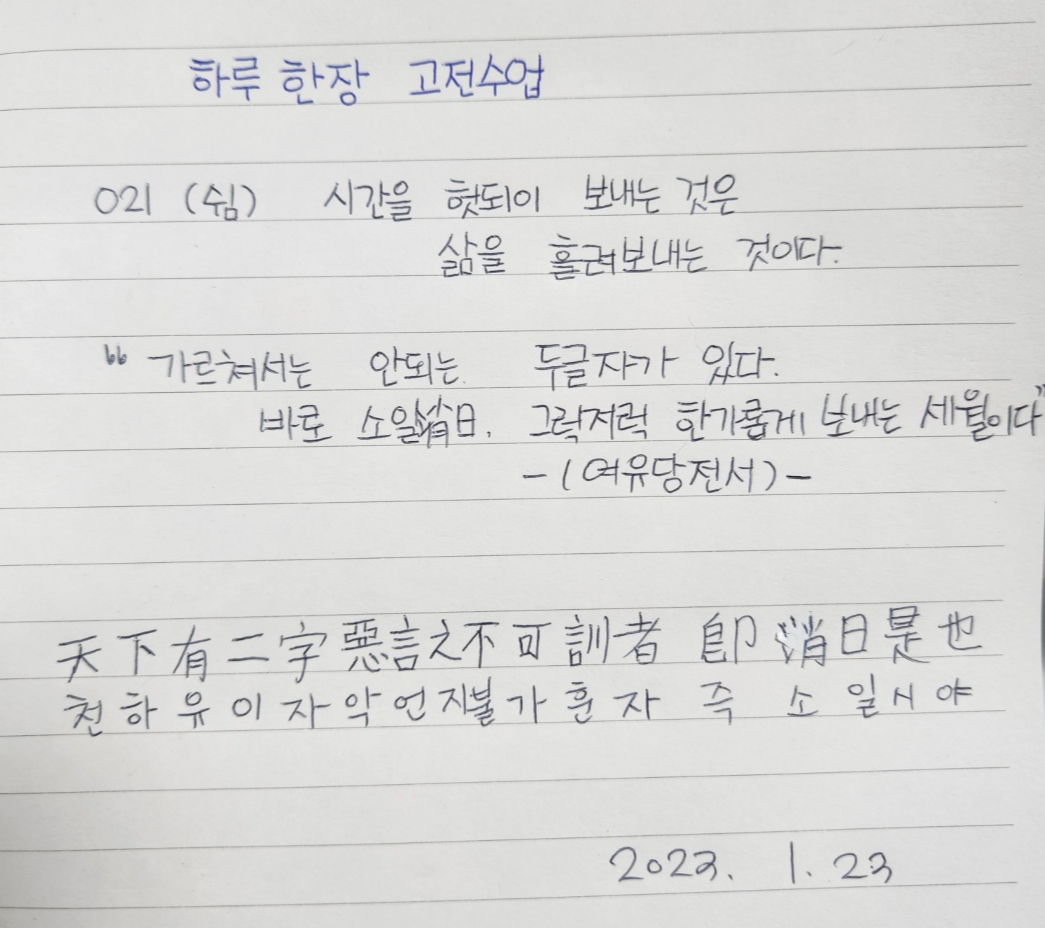 하루 한장 고전수업
021 (쉼) 시간을 헛되이 보내는 것은
삶을 흘려보내는 것이다.
"가르쳐서는 안되는 두글자가 있다.
바로 소일消日. 그럭저럭 한가롭게 보내는 세월이다"
- (여유당전서) -
天下有二字惡言之不可訓者 卽 消日是也
천하유이자악언지불가훈자 즉 소일시야
2023. 1. 23